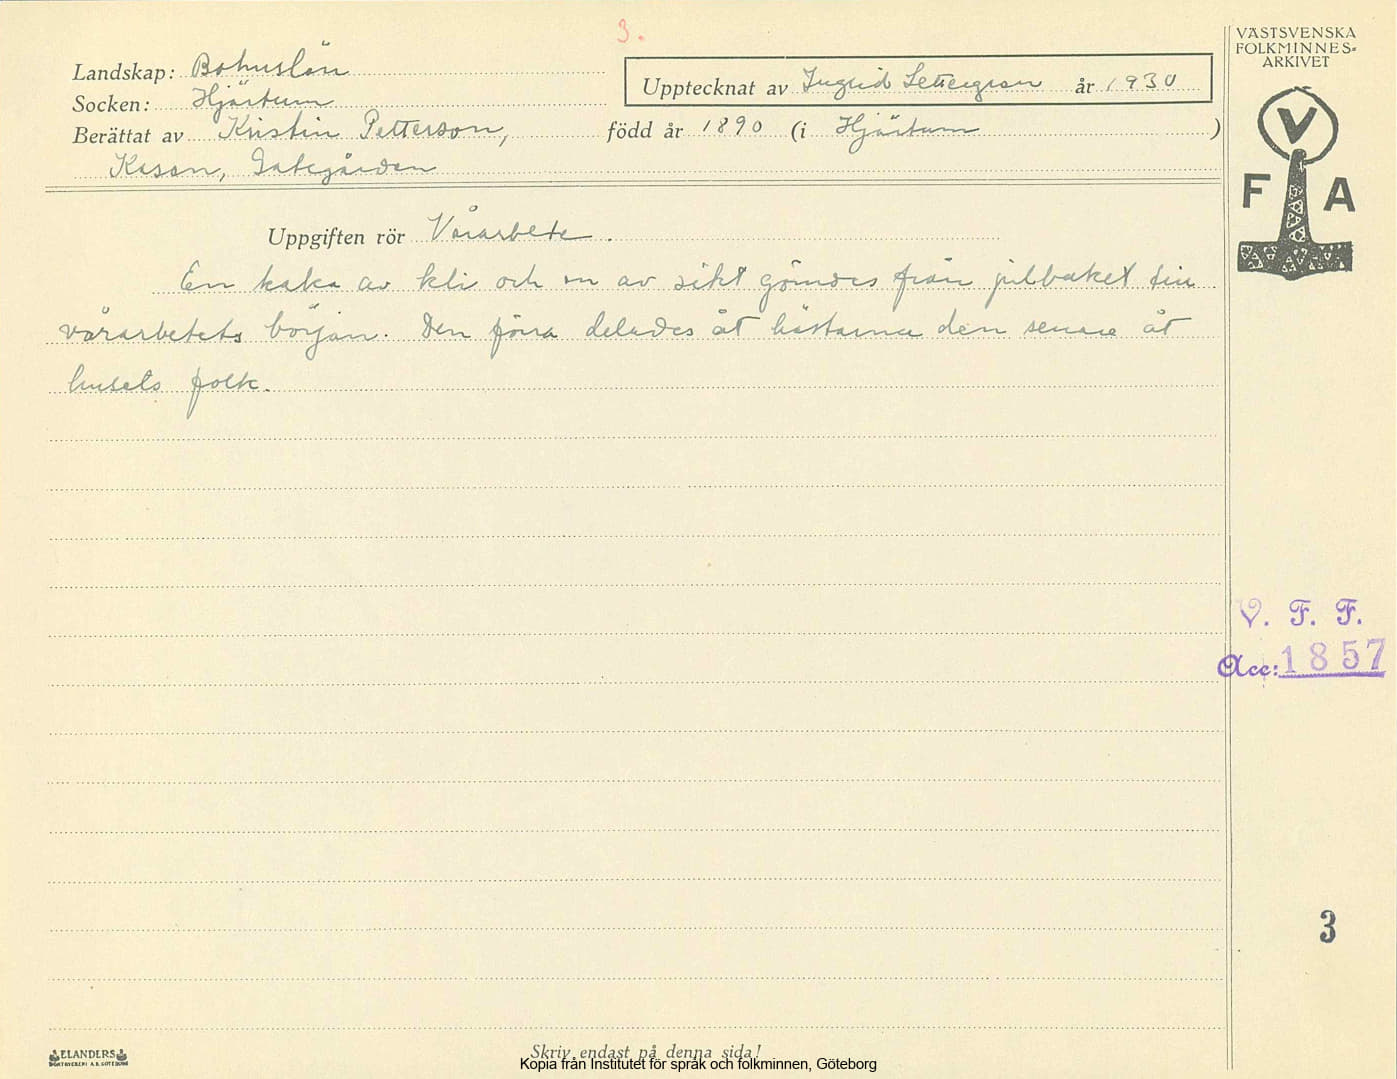 3.
VÄSTSVENSKA
FOLKMINNES-
ARKIVET
V
F A
Landskap: Bohuslän
Upptecknat av Ingrid Settergren år 1930
Socken: Hjärtum
Berättat av Kristin Petterson, född år 1890 (i Hjärtum)
Kasen, Gategården
Uppgiften rör Vårarbete.
En kaka av kli och en av sikt gömdes från julbaket till
vårarbetets början. Den förra delades åt hästarna den senare åt
husets folk.
V. F. F.
Acc: 1857
3
ELANDERS
Skriv endast på denna sida!
Kopia från Institutet för språk och folkminnen, Göteborg